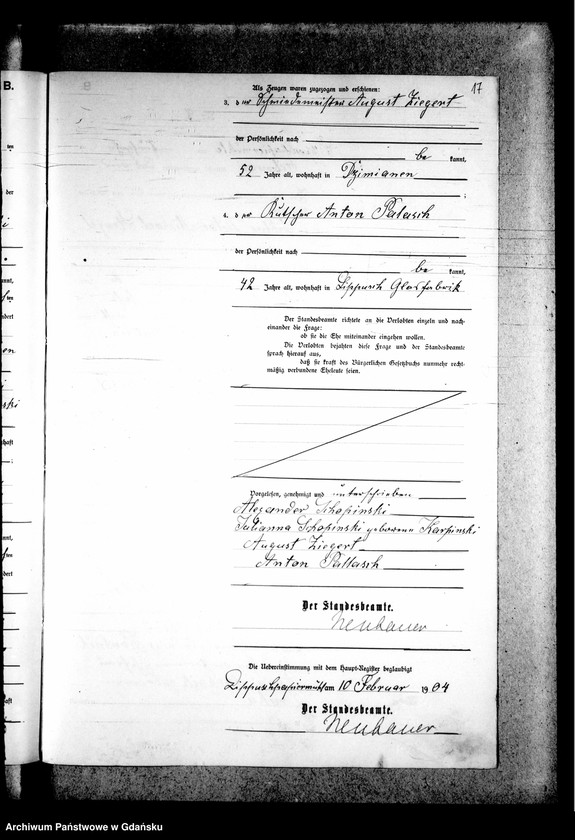 B.
17
Als Zeugen waren zugezogen und erschienen:
3. der Schmiedemeister August Ziegert
der Persönlichkeit nach
be kannt,
52 Jahre alt, wohnhaft in Dzimianen
;
4. der Kutscher Anton Palasch
der Persönlichkeit nach
be kannt,
42 Jahre alt, wohnhaft in Lippusch Glasfabrik
Der Standesbeamte richtete an die Verlobten einzeln und nach-
einander die Frage:
ob sie die Ehe miteinander eingehen wollen.
Die Verlobten bejahten diese Frage und der Standesbeamte
sprach hierauf aus,
daß sie kraft des Bürgerlichen Gesetzbuchs nunmehr recht-
mäßig verbundene Eheleute seien.
Vorgelesen, genehmigt und unterschrieben
Alexander Schopinski
Julianna Schopinski geborene Karpinski
August Ziegert
Anton Pallasch
Der Standesbeamte.
Neubauer
Die Uebereinstimmung mit dem Haupt-Register beglaubigt
am 10 Februar 1904
Der Standesbeamte.
Neubauer
Archiwum Państwowe w Gdańsku